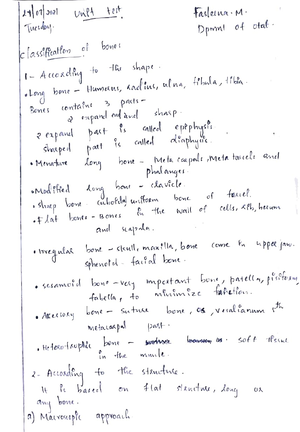 27/07/2021 Unit test Fasleena .M.
Tuesday. Dpmrt of otat.
Classification of bone:
1- According to the shape.
• Long bone - Humerus, radius, ulna, fibula, tibia.
Bones contains 3 parts -
2 expand end and shasp.
2 expand part is called epiphysis
shaped part is called diaphysis.
• Menature long bone - Meta carpals, Meta tarsels and
phalanges.
• Modified long bone - clavicle.
• Sharp bone cuboidal, uniform bone of tarsel.
• Flat bones - Bones in the wall of cells, rib, sternum
and scapula.
• Irregular bone - skull, maxilla, bone come in upper jaw.
sphenoid. facial bone.
• sesamoid bone - very important bone, patella, pisiform,
fabella, to minimize friction.
• Accessory bone - suture bone, os, 5th
metacarpal part.
• Heterotrophic bone - soft
in the muscle.
2. According to the structure.
It is based on flat structure, long or
any bone.
a) Macroscopic approach